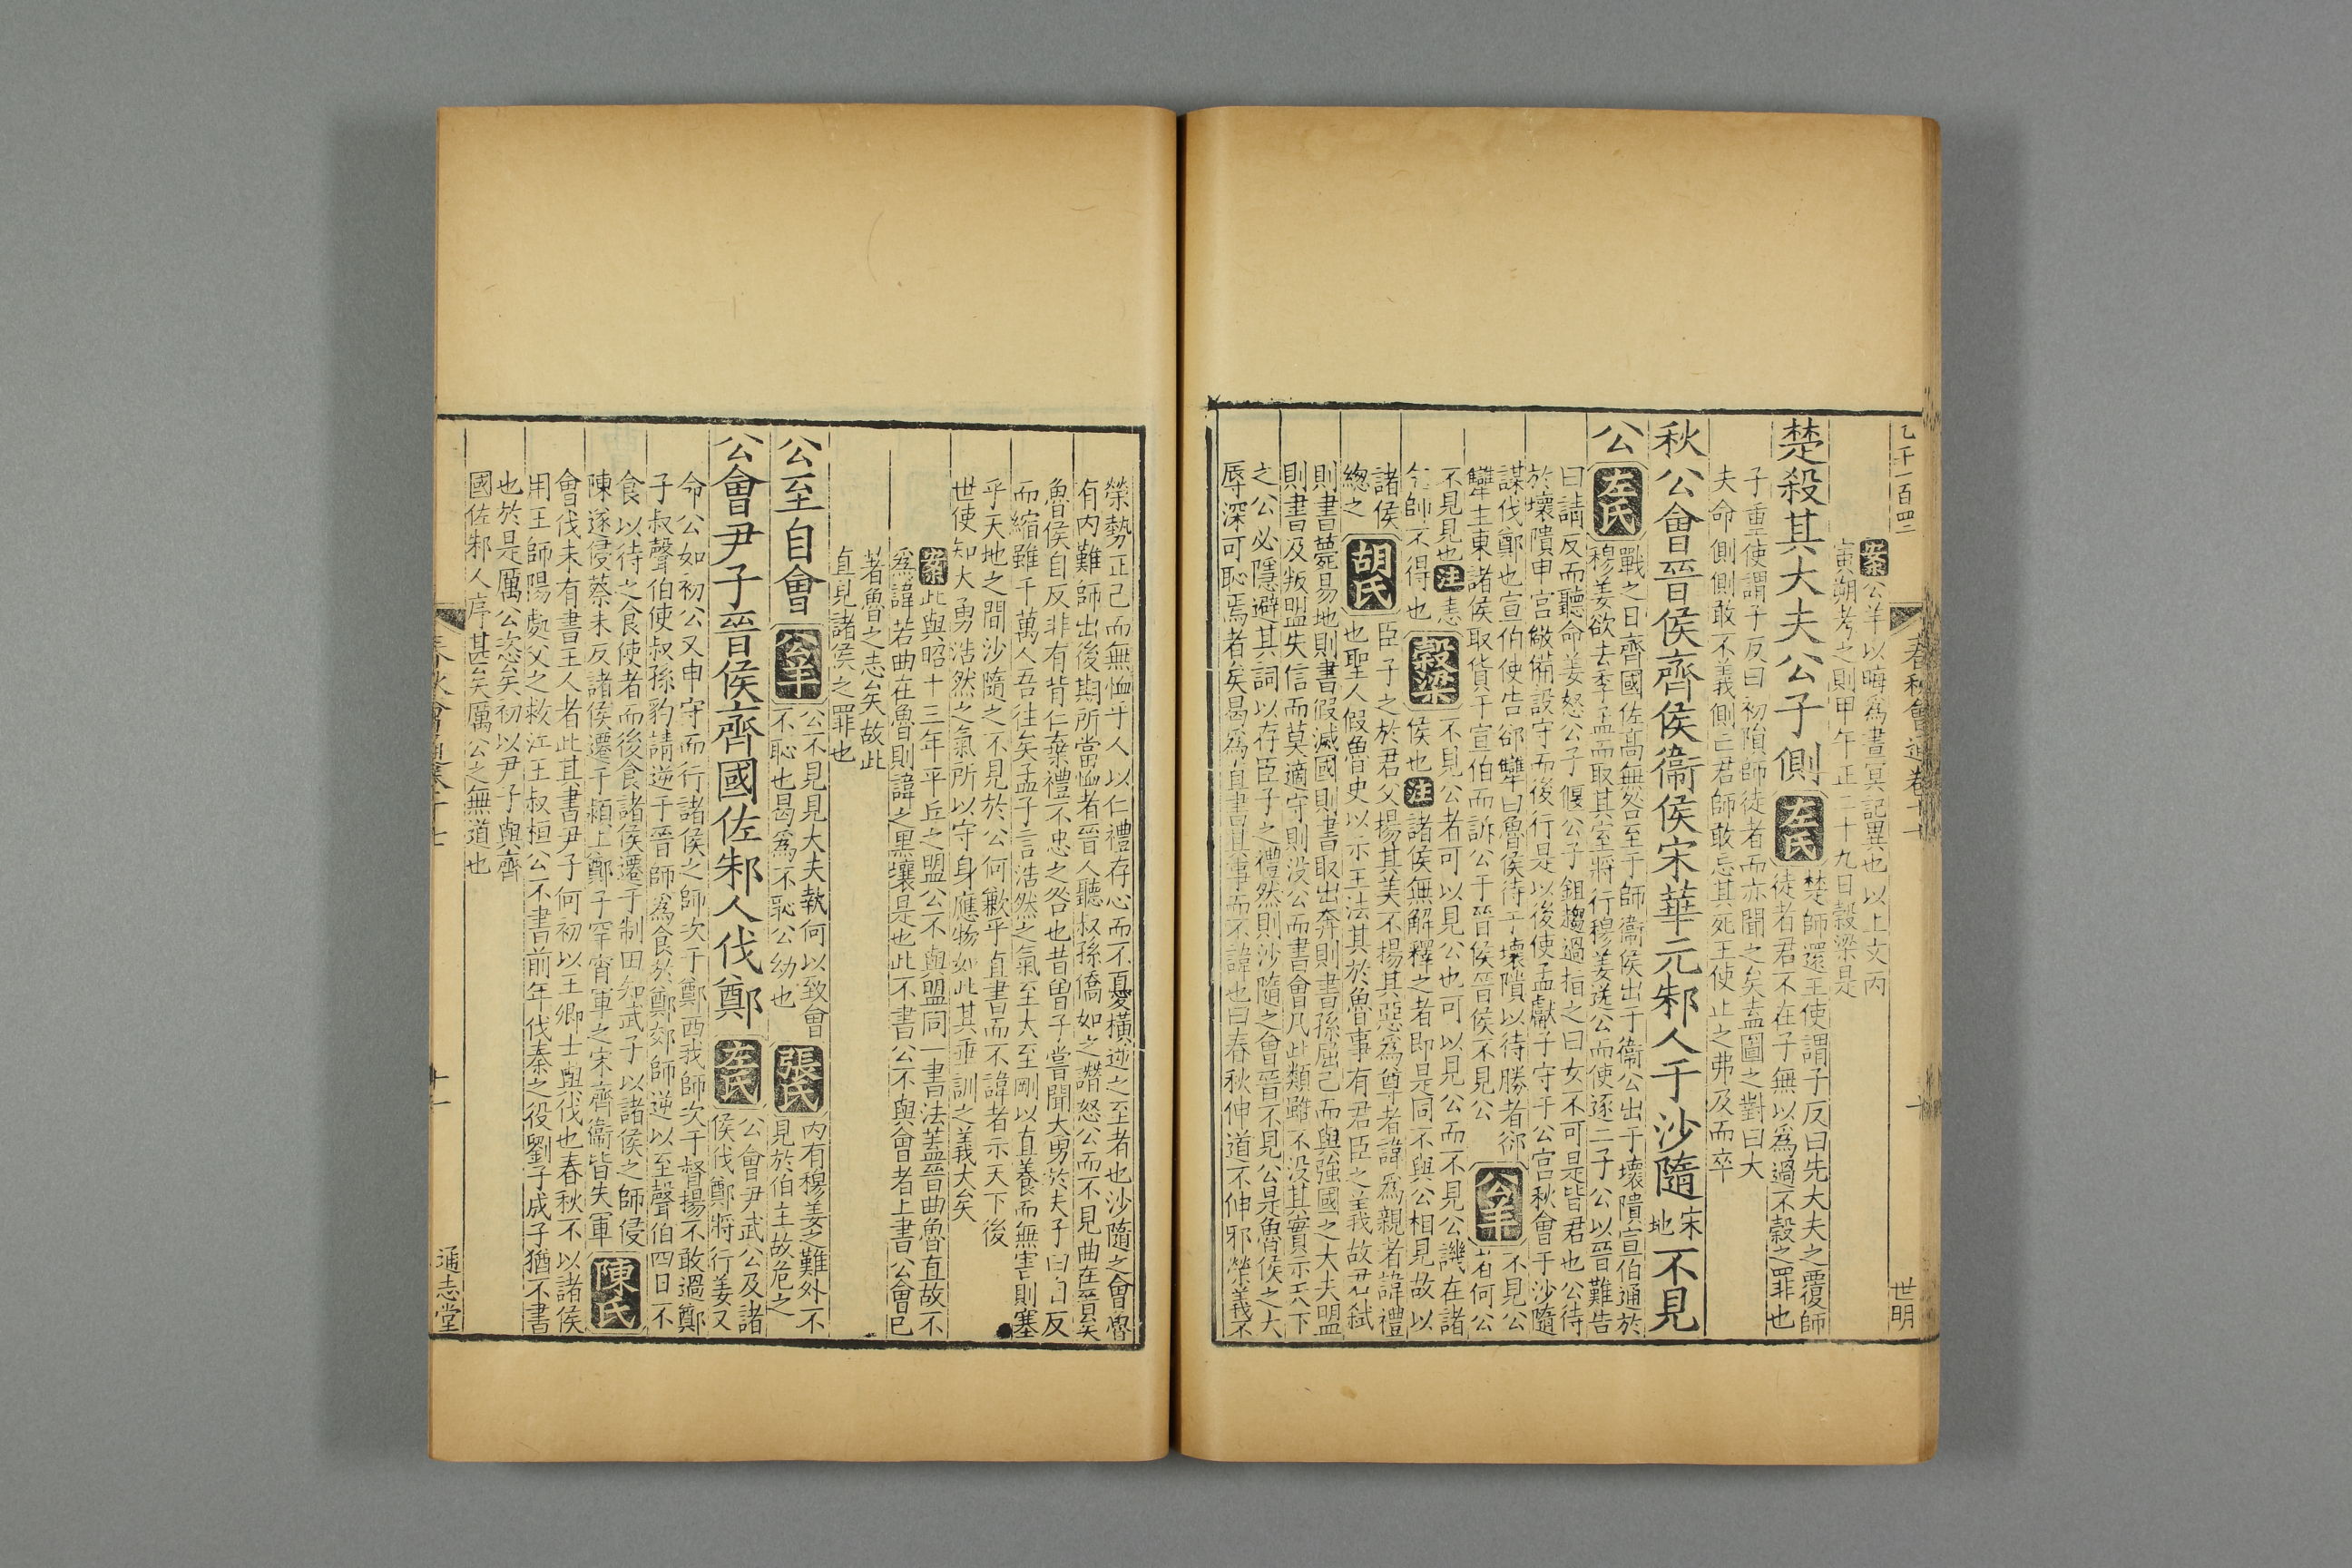 乙千一百四二
春秋會通卷十
十
世明
案公羊以晦為晝冥記異也以上文丙
寅朔考之則甲午正二十九日穀梁是
楚殺其大夫公子側
左氏
楚師還王使謂子反曰先大夫之覆師
徒者君不在子無以為過不穀之罪也
子重使謂子反曰初隕師徒者而亦聞之矣盍圖之對曰大
夫命側側敢不義側亡君師敢忘其死王使止之弗及而卒
秋公會晉侯齊侯衞侯宋華元邾人于沙隨宋地不見
公
左氏
戰之日齊國佐高無咎至于師衞侯出于衞公出于壞隤宣伯通於
穆姜欲去季孟而取其室將行穆姜送公而使逐二子公以晉難告
曰請反而聽命姜怒公子偃公子鉏趨過指之曰女不可是皆君也公待
於壞隤申宮儆備設守而後行是以後使孟獻子守于公宮秋會于沙隨
謀伐鄭也宣伯使告郤犨曰魯侯待于壞隤以待勝者郤
犨主東諸侯取貨于宣伯而訴公于晉侯晉侯不見公
公羊
不見公
者何公
不見見也
注
恚
不見公者可以見公也可以見公而不見公譏在諸
師不得也
穀梁
侯也
注
諸侯無解釋之者即是同不與公相見故以
諸侯
總之
胡氏
臣子之於君父揚其美不揚其惡為尊者諱為親者諱禮
也聖人假魯史以示王法其於魯事有君臣之義故君弒
則書薨易地則書假滅國則書取出奔則書孫屈己而與強國之大夫盟
則書及叛盟失信而莫適守則沒公而書會凡此類雖不沒其實示天下
之公必隱避其詞以存臣子之禮然則沙隨之會晉不見公是魯侯之大
辱深可恥焉者矣曷為直書其事而不諱也曰春秋伸道不伸邪榮義不
榮勢正己而無恤乎人以仁禮存心而不憂橫逆之至者也沙隨之會魯
有內難師出後期所當恤者晉人聽叔孫僑如之譖怒公而不見曲在晉矣
魯侯自反非有背仁棄禮不忠之咎也昔曾子嘗聞大勇於夫子曰自反
而縮雖千萬人吾往矣孟子言浩然之氣至大至剛以直養而無害則塞
乎天地之間沙隨之不見於公何歉乎直書而不諱者示天下後
世使知大勇浩然之氣所以守身應物如此其垂訓之義大矣
案此與昭十三年平丘之盟公不與盟同一書法蓋晉曲魯直故不
為諱若曲在魯則諱之黑壤是也此不書公不與會者上書公會已
著魯之志矣故此
直見諸侯之罪也
公至自會
公羊
公不見見大夫執何以致會
不恥也曷為不恥公幼也
張氏
內有穆姜之難外不
見於伯主故危之
公會尹子晉侯齊國佐邾人伐鄭
左氏
公會尹武公及諸
侯伐鄭將行姜又
命公如初公又申守而行諸侯之師次于鄭西我師次于督揚不敢過鄭
子叔聲伯使叔孫豹請逆于晉師為食於鄭郊師逆以至聲伯四日不
食以待之食使者而後食諸侯遷于制田知武子以諸侯之師侵
陳遂侵蔡未反諸侯遷于潁上鄭子罕宵軍之宋齊衞皆失軍
陳氏
會伐未有書王人者此其書尹子何初以王卿士與伐也春秋不以諸侯
用王師陽處父之救江王叔桓公不書前年伐秦之役劉子成子猶不書
也於是厲公恣矣初以尹子與齊
國佐邾人序甚矣厲公之無道也
十一
通志堂